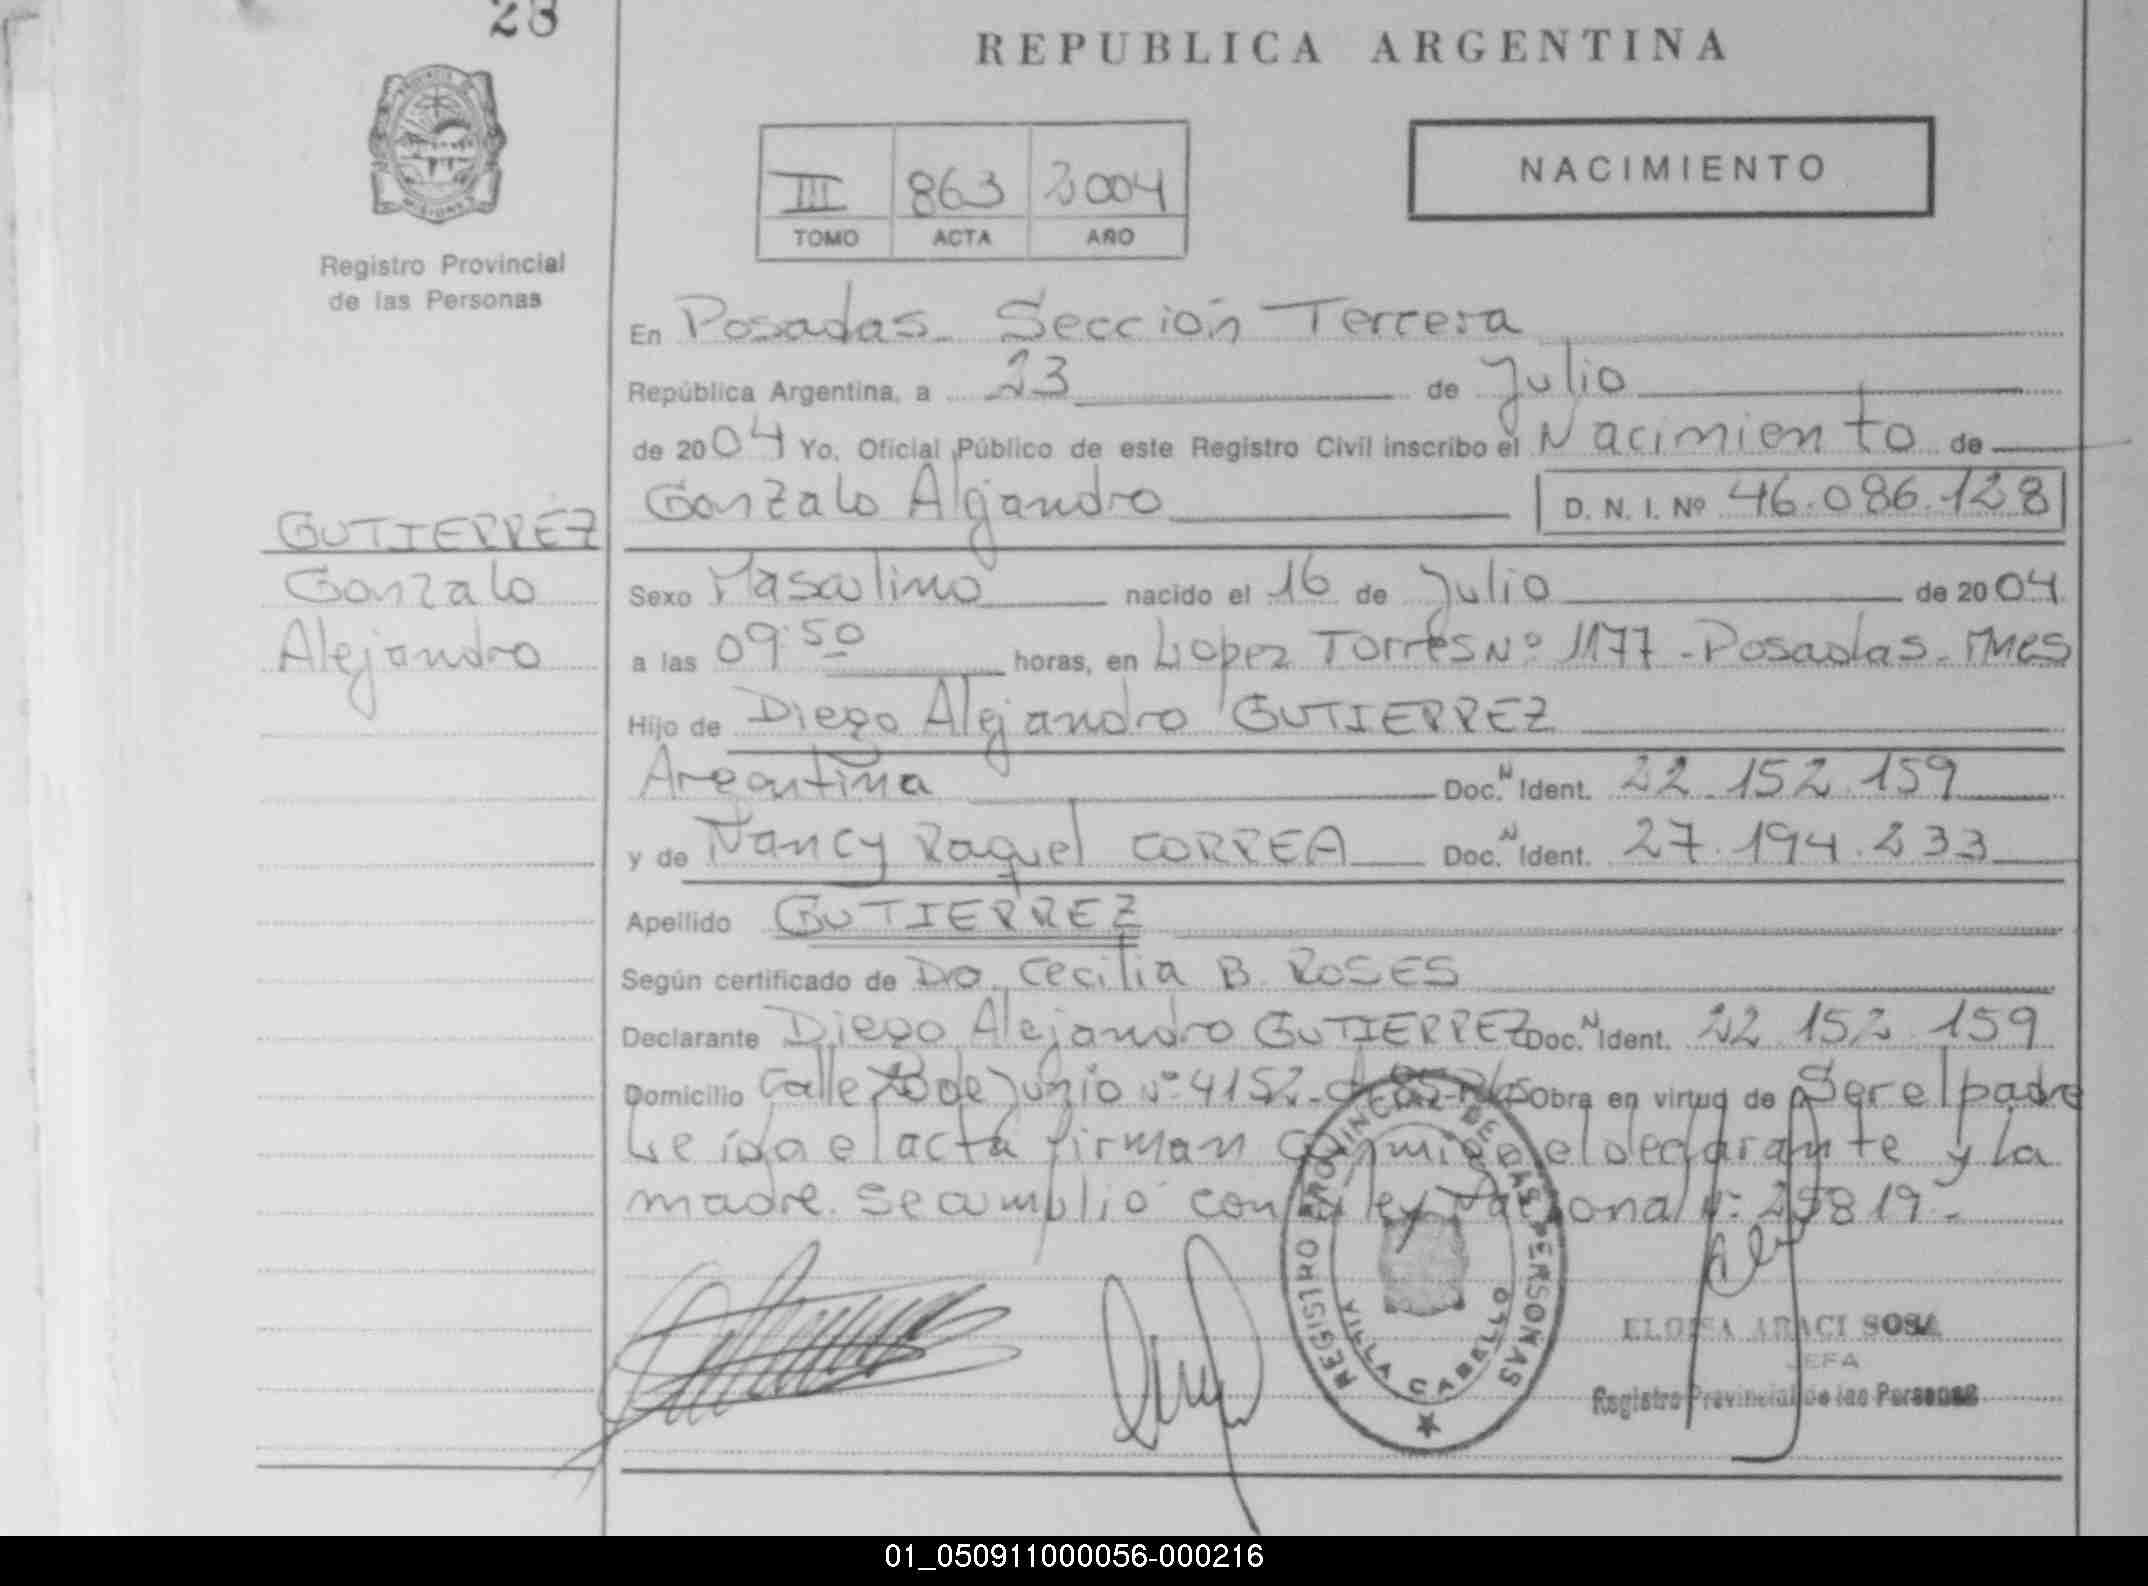 23
REPUBLICA ARGENTINA
NACIMIENTO
III 863 2004
TOMO ACTA AÑO
Registro Provincial
de las Personas
En Posadas - Sección Tercera
República Argentina, a 23 de Julio
de 2004 Yo, Oficial Público de este Registro Civil inscribo el Nacimiento de
Gonzalo Alejandro D. N. I. Nº 46.086.128
GUTIERREZ
Gonzalo
Alejandro
Sexo Masculino nacido el 16 de Julio de 2004
a las 09:50 horas, en Lopez Torres Nº 1177 - Posadas - Mnes
Hijo de Diego Alejandro GUTIERREZ
Argentina Doc.N Ident. 22.152.159
y de Nancy Raquel CORREA Doc.N Ident. 27.194.233
Apellido GUTIERREZ
Según certificado de Dra. Cecilia B. ROSES
Declarante Diego Alejandro GUTIERREZ Doc.N Ident. 22.152.159
Domicilio Calle de Junio Nº 4152 - Obra en virtud de Ser el padre
Leída el acta firman conmigo el declarante y la
madre. Se cumplió con la ley Nacional Nº: 25819.-
REGISTRO PROVINCIAL DE LAS PERSONAS
VILLA CABELLO
ELOISA ARACI SOSA
JEFA
Registro Provincial de las Personas
01_050911000056-000216